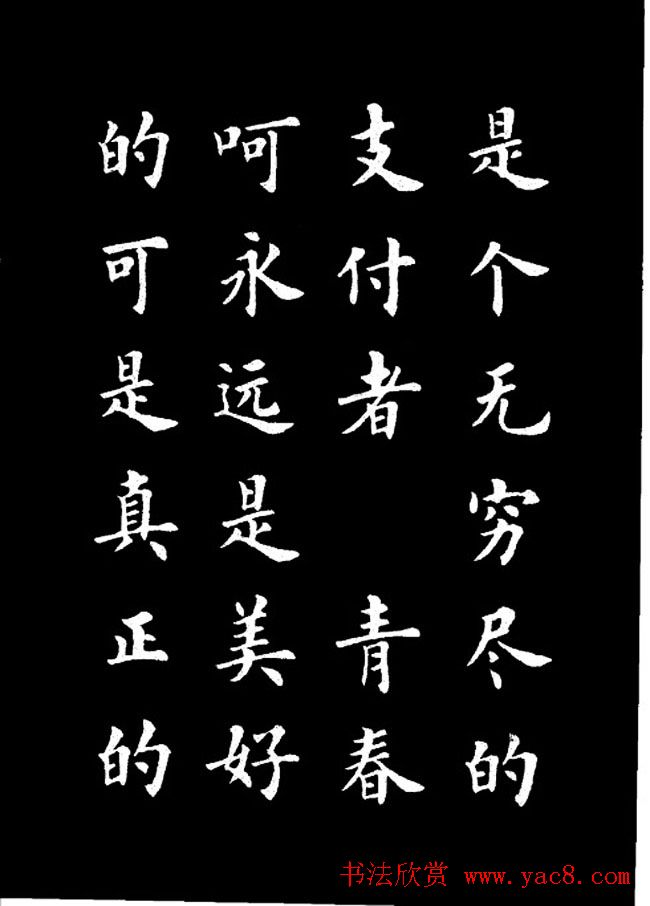 是个无穷尽的
支付者 青春
呵永远是美好
的可是真正的
书法欣赏 www.yac8.com